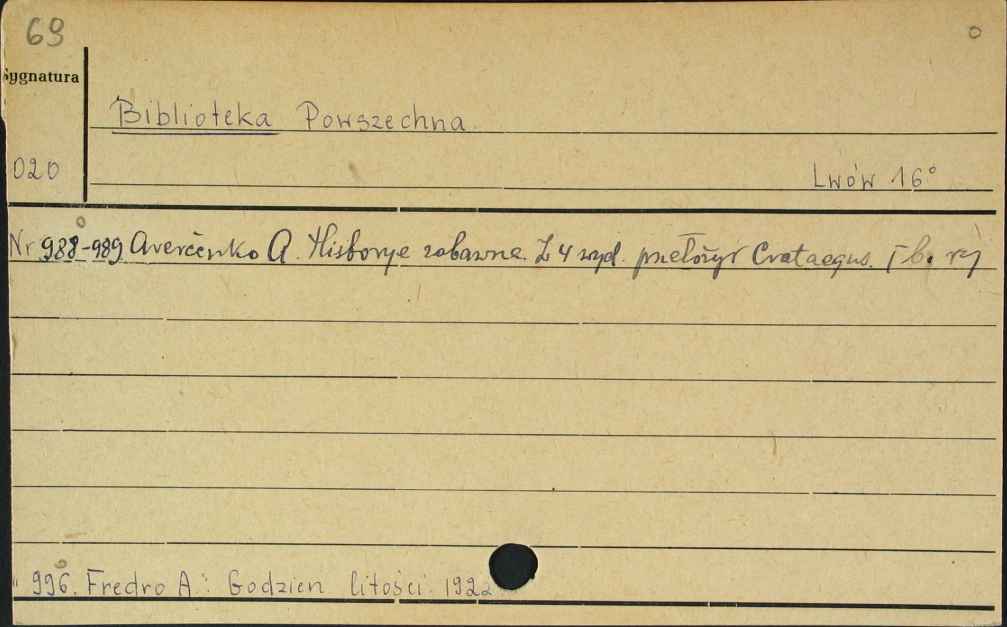 69
Sygnatura
Biblioteka Powszechna.
020
Lwów 16°
Nr 988-989 Averčenko A. Historye zabawne. Z 4 wyd. przełożył Crataegus. [b. r.]
" 996. Fredro A.: Godzien litości. 1922